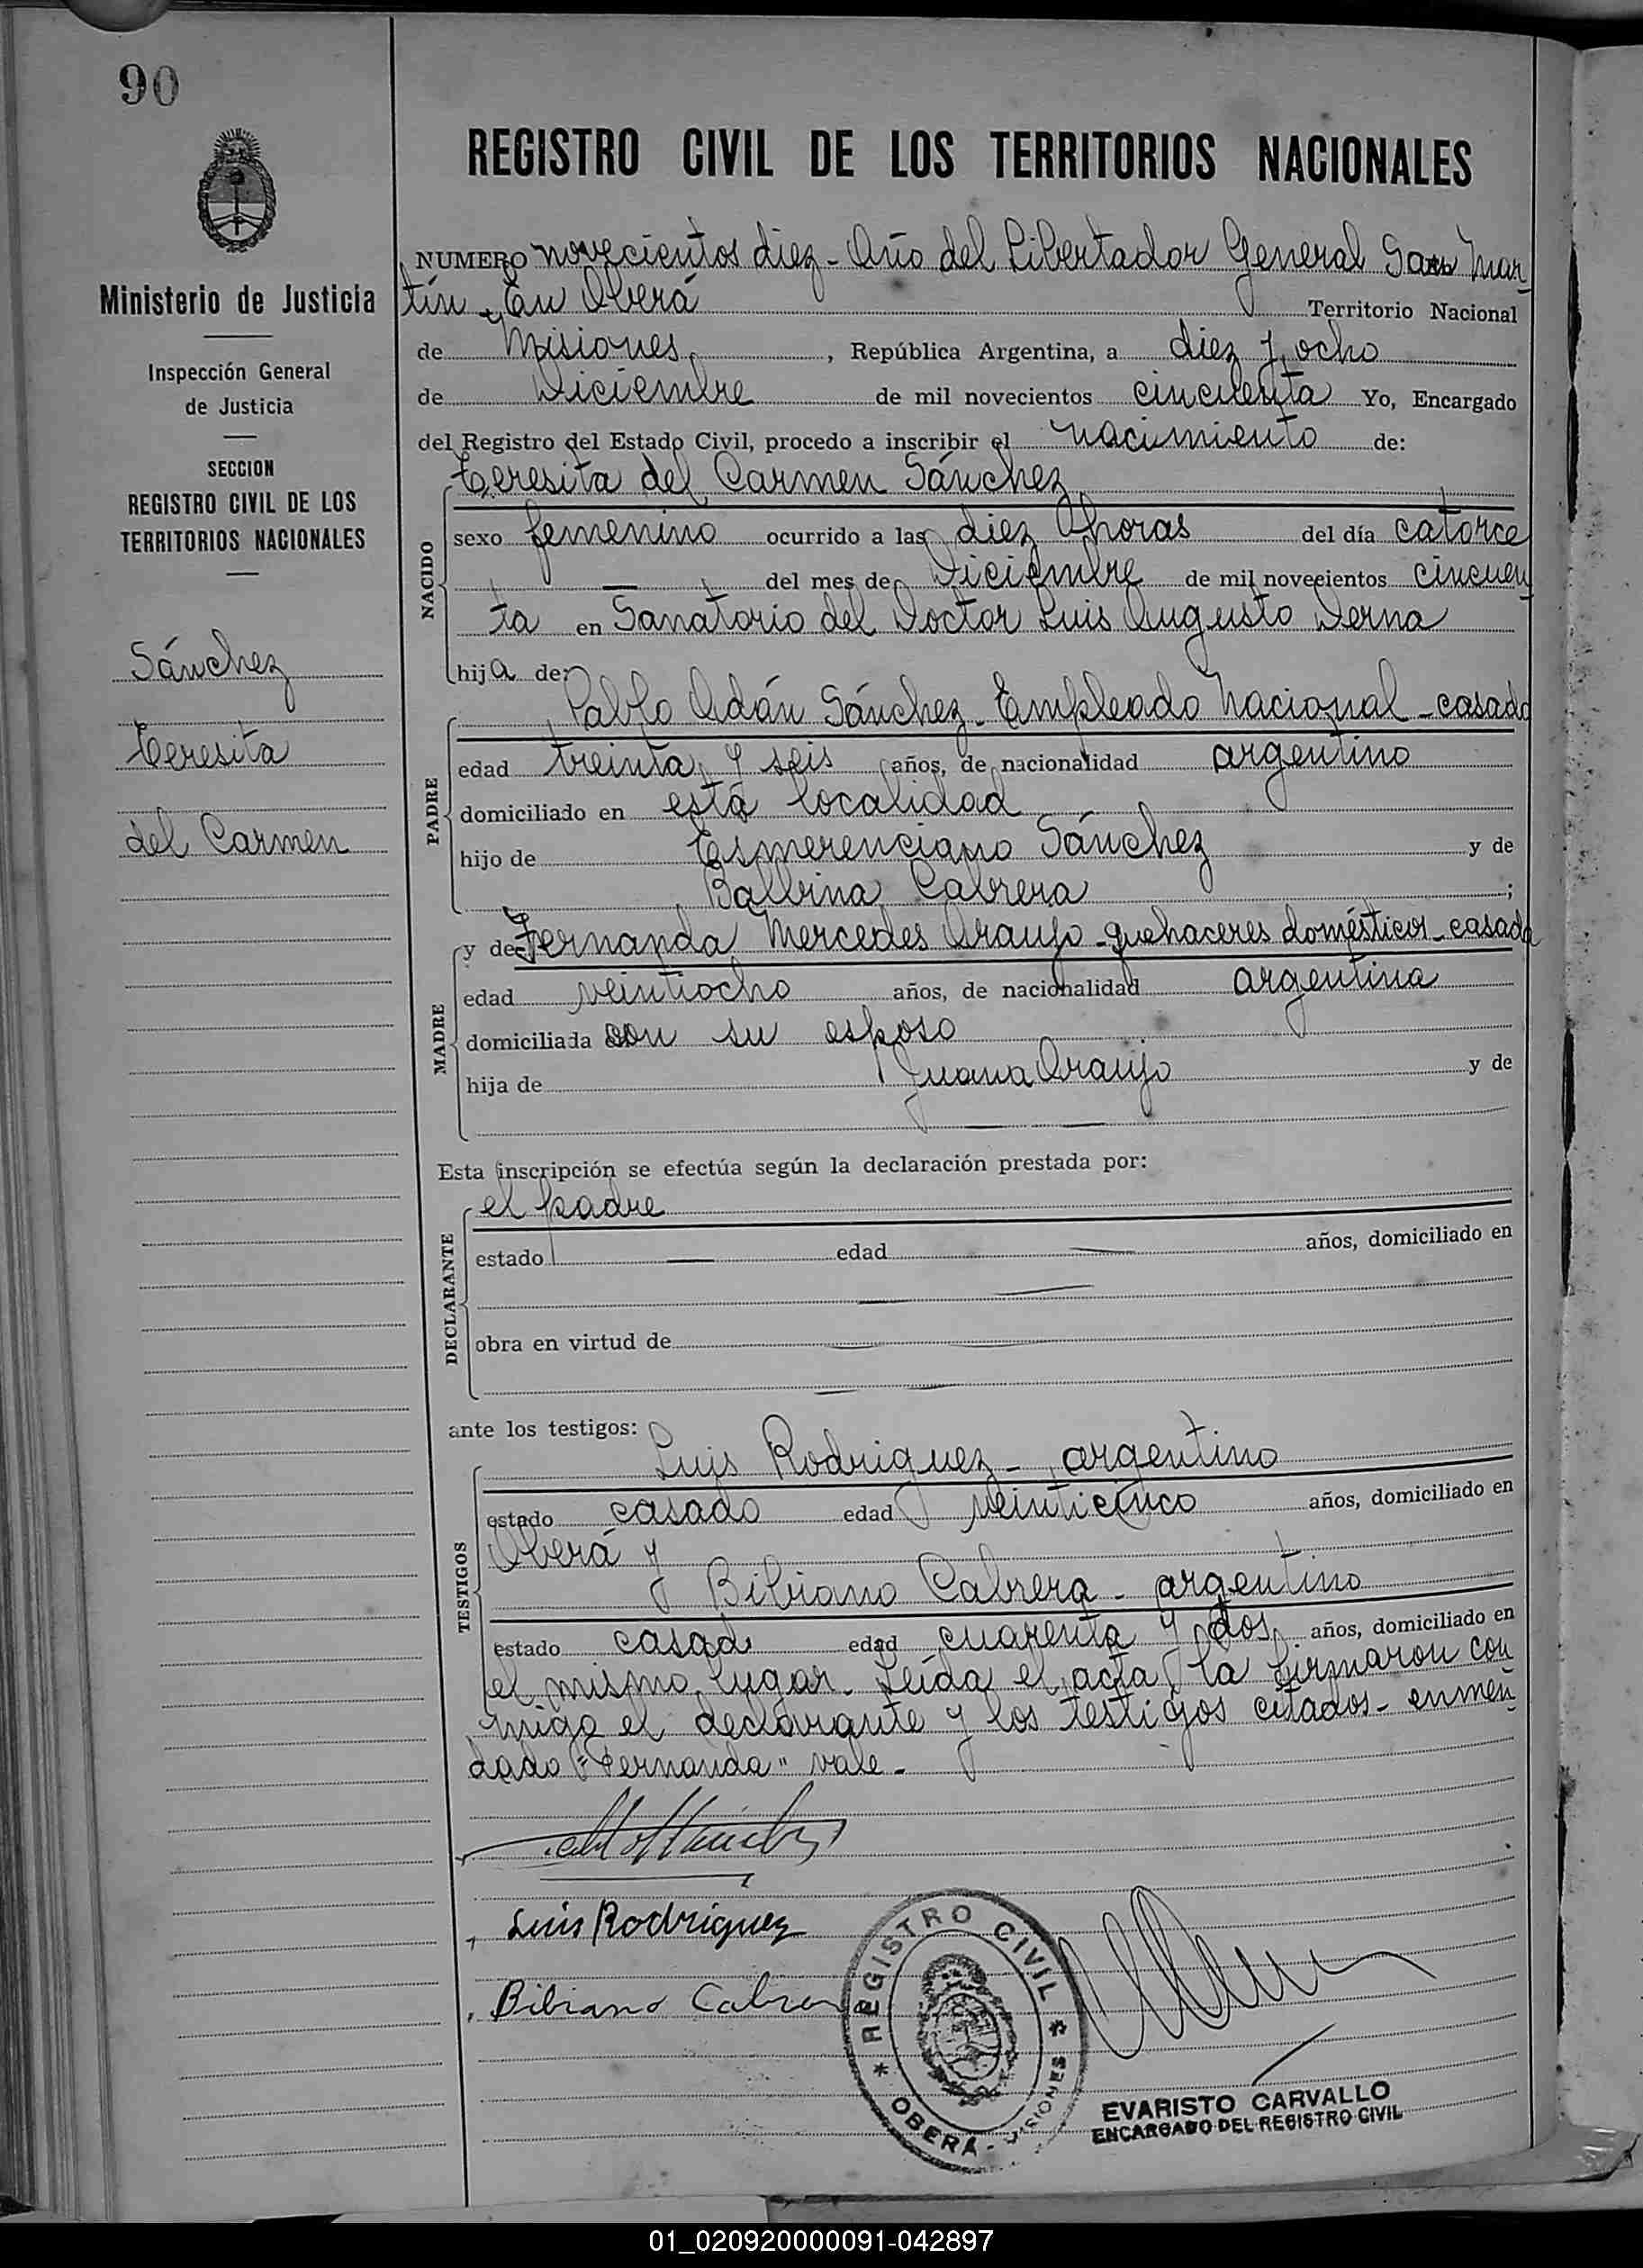 90
REGISTRO CIVIL DE LOS TERRITORIOS NACIONALES
Ministerio de Justicia
Inspección General
de Justicia
SECCION
REGISTRO CIVIL DE LOS
TERRITORIOS NACIONALES
Sánchez
Teresita
del Carmen
NUMERO novecientos diez - Año del Libertador General San Mar
tín - En Oberá Territorio Nacional
de Misiones, República Argentina, a diez y ocho
de Diciembre de mil novecientos cincuenta Yo, Encargado
del Registro del Estado Civil, procedo a inscribir el nacimiento de:
Teresita del Carmen Sánchez
NACIDO
sexo femenino ocurrido a las diez horas del día catorce
del mes de Diciembre de mil novecientos cincuen
ta en Sanatorio del Doctor Luis Augusto Derna
hija de:
Pablo Adán Sánchez - Empleado Nacional - casado
PADRE
edad treinta y seis años, de nacionalidad argentino
domiciliado en está localidad
hijo de Esmerenciano Sánchez y de
Balbina Cabrera ;
y de Fernanda Mercedes Araujo - quehaceres domésticos - casada
MADRE
edad veintiocho años, de nacionalidad argentina
domiciliada con su esposo
hija de Juana Araujo y de
Esta inscripción se efectúa según la declaración prestada por:
el padre
DECLARANTE
estado edad años, domiciliado en
obra en virtud de
ante los testigos:
Luis Rodriguez - argentino
TESTIGOS
estado casado edad veinticinco años, domiciliado en
Oberá y
Bibiano Cabrera - argentino
estado casado edad cuarenta y dos años, domiciliado en
el mismo lugar. Leída el acta, la firmaron con
migo el declarante y los testigos citados - enmen
dado "Fernanda" vale -
Luis Rodriguez
Bibiano Cabrera
* REGISTRO CIVIL *
OBERÁ - MISIONES
EVARISTO CARVALLO
ENCARGADO DEL REGISTRO CIVIL
01_020920000091-042897